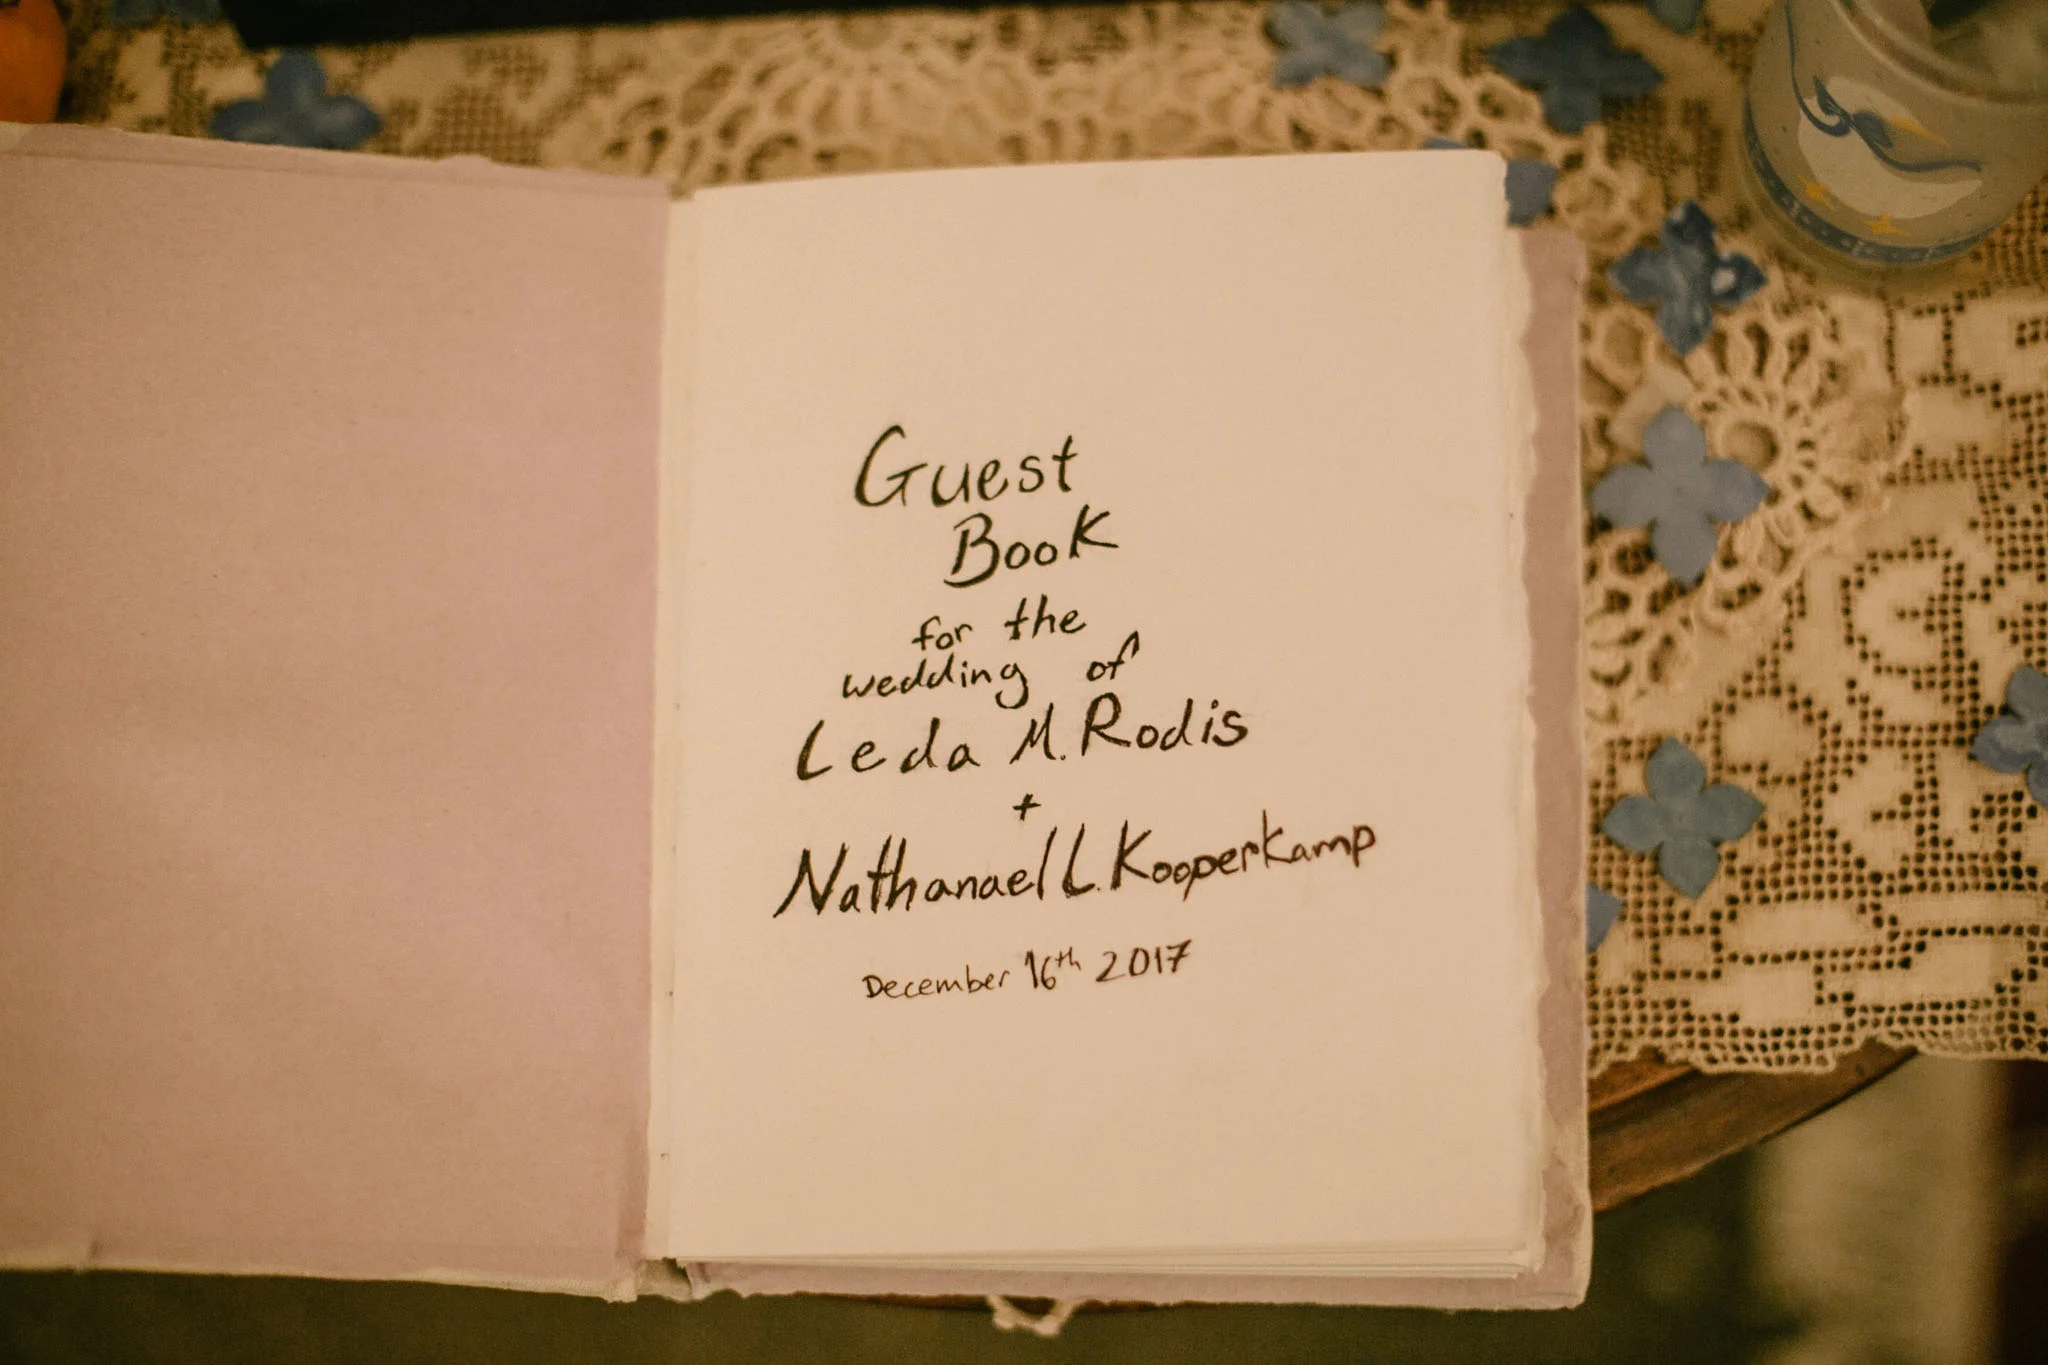 Guest
Book
for the
wedding of
Leda M. Rodis
+
Nathanael L. Kooperkamp
December 16th 2017